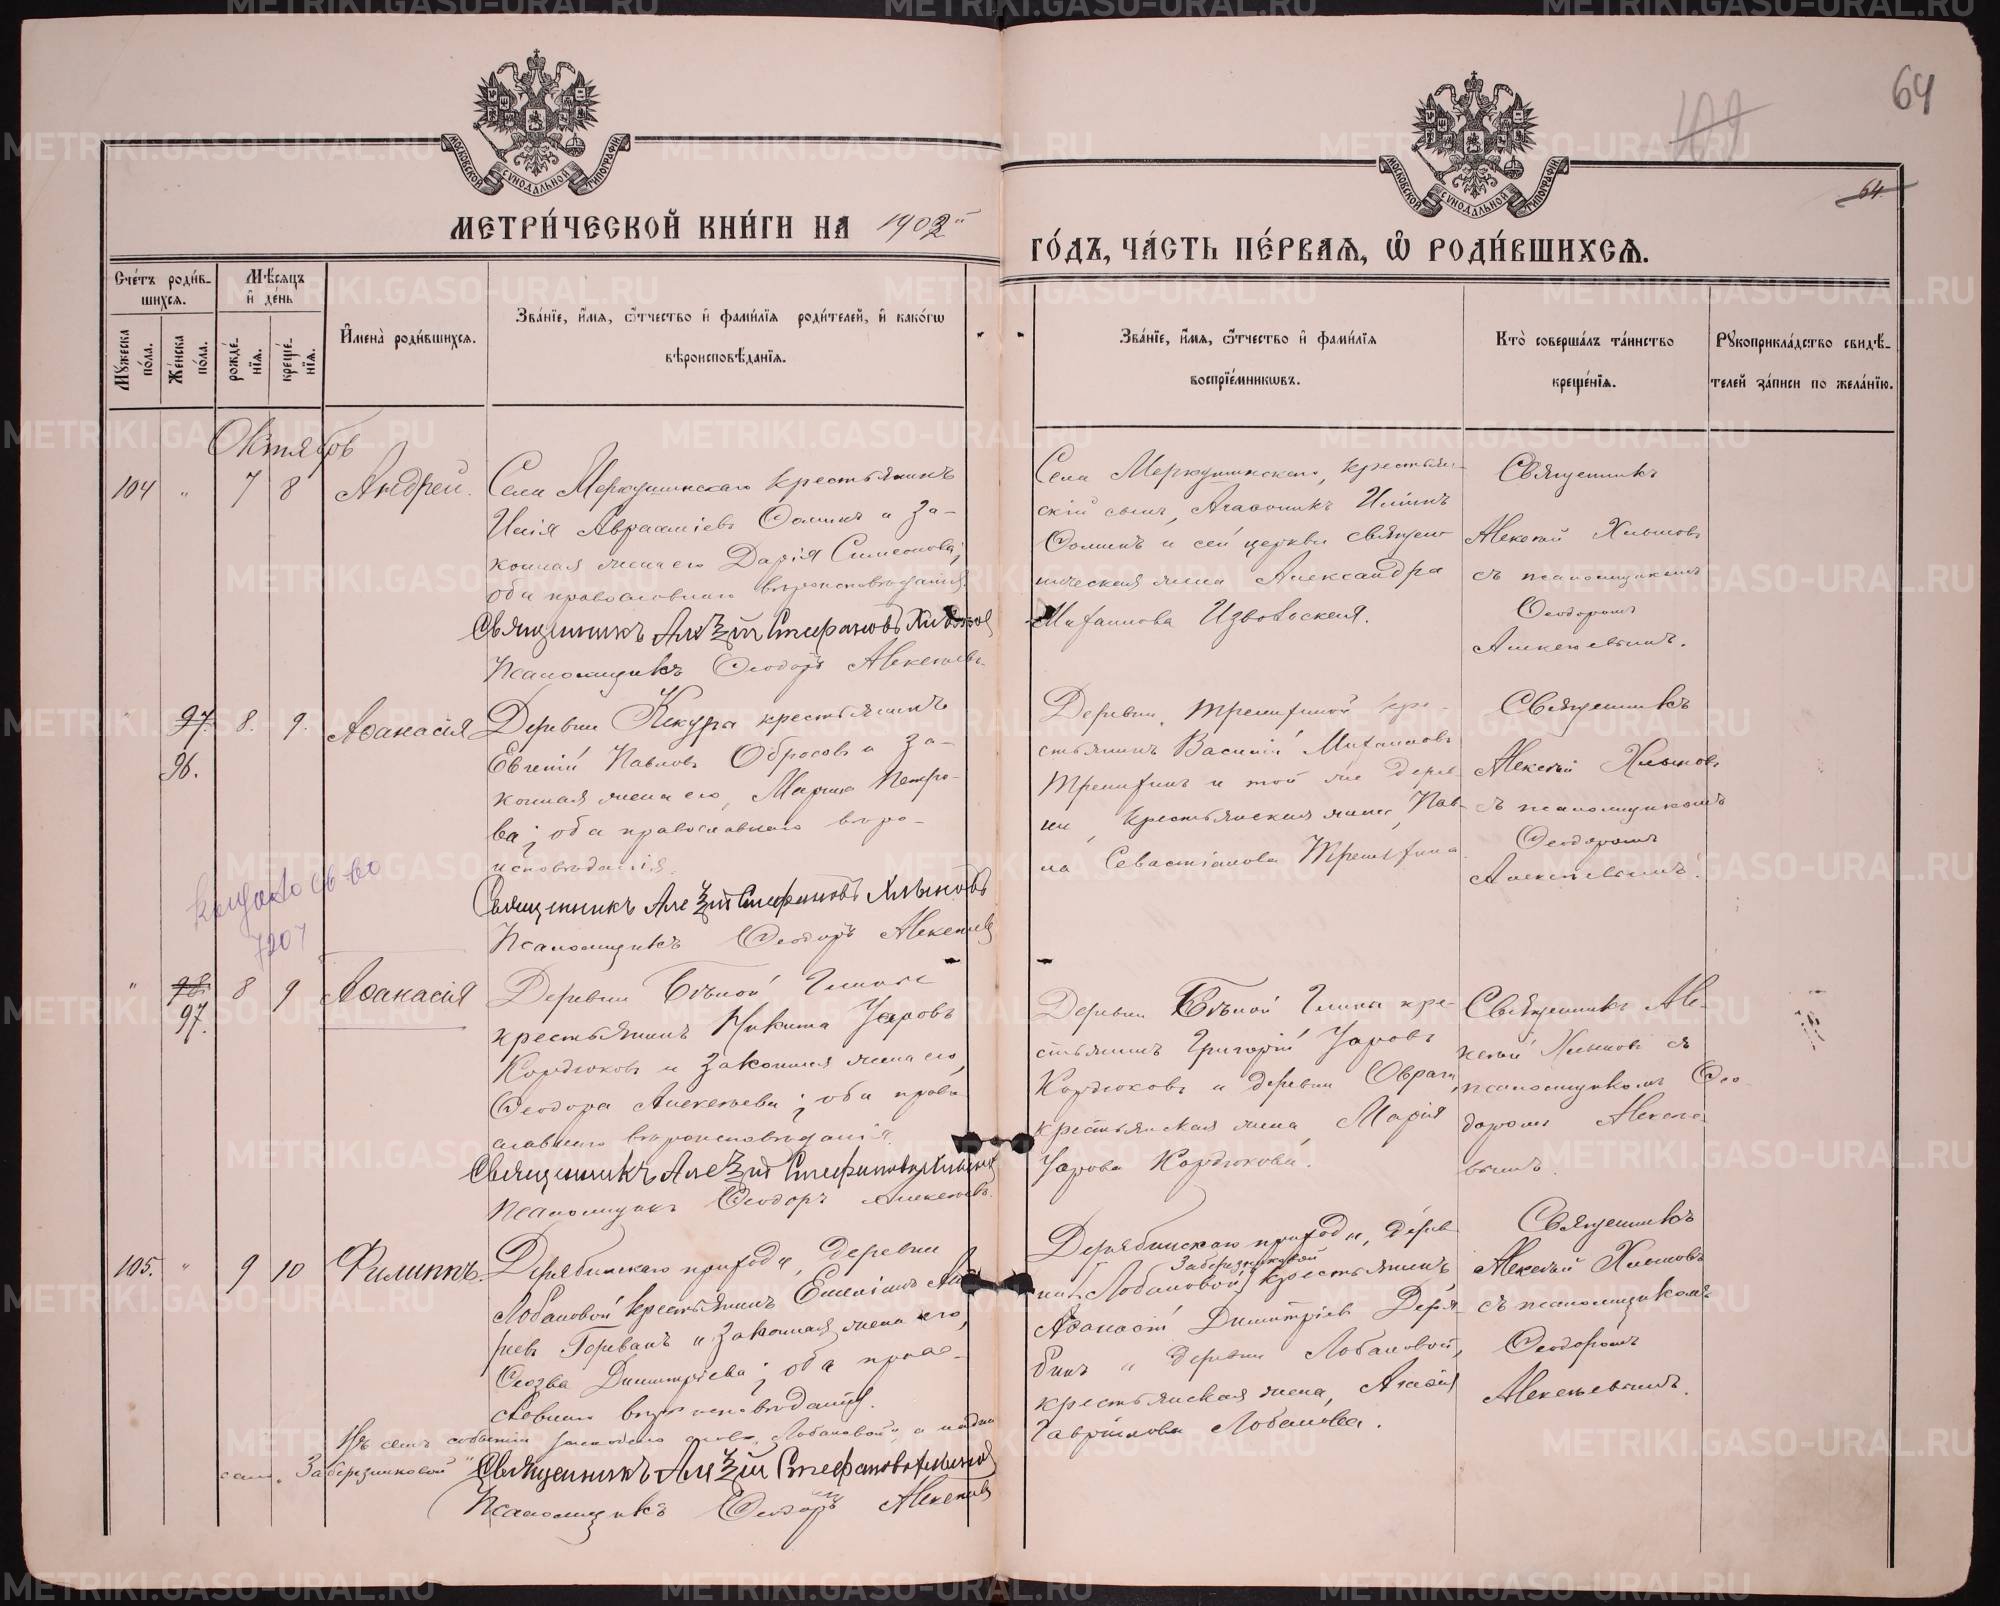 64
64
МОСКОВСКОЙ СѴНОДАЛЬНОЙ ТИПОГРАФІИ
МОСКОВСКОЙ СѴНОДАЛЬНОЙ ТИПОГРАФІИ
МЕТРИ́ЧЕСКОЙ КНИ́ГИ НА 1902
ГО́ДЪ, ЧА́СТЬ ПЕ́РВАѦ, Ѡ҆ РОДИ́ВШИХСѦ.
Сче́тъ роди́в-
шихсѧ.
Мꙋ́жеска по́ла.
Же́нска по́ла.
Мѣ́сѧцъ и҆ де́нь
рожде́-
нїѧ.
креще́-
нїѧ.
И҆мена̀ роди́вшихсѧ.
Зва́нїе, и҆́мѧ, ѻ҆́тчество и҆ фами́лїѧ роди́телей, и҆ како́гѡ
вѣроисповѣ́данїѧ.
Зва́нїе, и҆́мѧ, ѻ҆́тчество и҆ фами́лїѧ
воспрїе́мникѡвъ.
Кто̀ соверша́лъ та́инство
креще́нїѧ.
Рꙋкоприкла́дство свидѣ́-
телей за́писи по жела́нїю.
Октябрь
104 " 7 8 Андрей.
Села Меркушинскаго крестьянинъ
Илія Аврааміевъ Ѳоминъ и за-
конная жена его Дарія Симеонова;
оба православнаго вѣроисповѣданія
Священникъ Алексій Стефановъ Хлыновъ
Псаломщикъ Ѳеодоръ Алексѣевъ
Села Меркушинскаго, крестьян-
скій сынъ, Агаѳоникъ Иліинъ
Ѳоминъ и сей церкви священ-
ническая жена Александра
Михаилова Извольская.
Священникъ
Алексій Хлыновъ
съ псаломщикомъ
Ѳеодоромъ
Алексѣевымъ.
" 97. 8. 9. Аѳанасія
96.
Деревни Кекура крестьянинъ
Евгеній Павловъ Обросовъ и за-
конная жена его, Марія Петро-
ва; оба православнаго вѣро-
исповѣданія.
Священникъ Алексій Стефановъ Хлыновъ
Псаломщикъ Ѳеодоръ Алексѣевъ
Деревни Тренихиной кре-
стьянинъ Василій Михаиловъ
Тренихинъ и той же дерев-
ни, крестьянская жена, Пав-
ла Севастіанова Тренихина.
Священникъ
Алексій Хлыновъ
съ псаломщикомъ
Ѳеодоромъ
Алексѣевымъ.
выдано св-во
7207
" 98. 8 9 Аѳанасія
97.
Деревни Бѣлой Глины
крестьянинъ Никита Уаровъ
Кордюковъ и законная жена его,
Ѳеодора Алексѣева; оба право-
славнаго вѣроисповѣданія.
Священникъ Алексій Стефановъ Хлыновъ
Псаломщикъ Ѳеодоръ Алексѣевъ.
Деревни Бѣлой Глины кре-
стьянинъ Григорій Уаровъ
Кордюковъ и деревни Оврага,
крестьянская жена, Марія
Уарова Кордюкова.
Священникъ Але-
ксій Хлыновъ съ
псаломщикомъ Ѳео-
доромъ Алексѣе-
вымъ.
105. " 9 10 Филиппъ.
Дерябинскаго прихода, деревни
Лобановой крестьянинъ
и законная жена его,
Димитріева; оба право-
славнаго вѣроисповѣданія.
Въ семъ событіи слово "Лобановой", а надпи-
сано "Заберезниковой"
Священникъ Алексій Стефановъ Хлыновъ
Псаломщикъ Ѳеодоръ Алексѣевъ
Дерябинскаго прихода, дерев-
Заберезниковой
ни Лобановой крестьянинъ
Аѳанасій Димитріевъ Деря-
бинъ и деревни Лобановой,
крестьянская жена, Агаѳія
Гавріилова Лобанова.
Священникъ
Алексій Хлыновъ
съ псаломщикомъ
Ѳеодоромъ
Алексѣевымъ.
METRIKI.GASO-URAL.RU